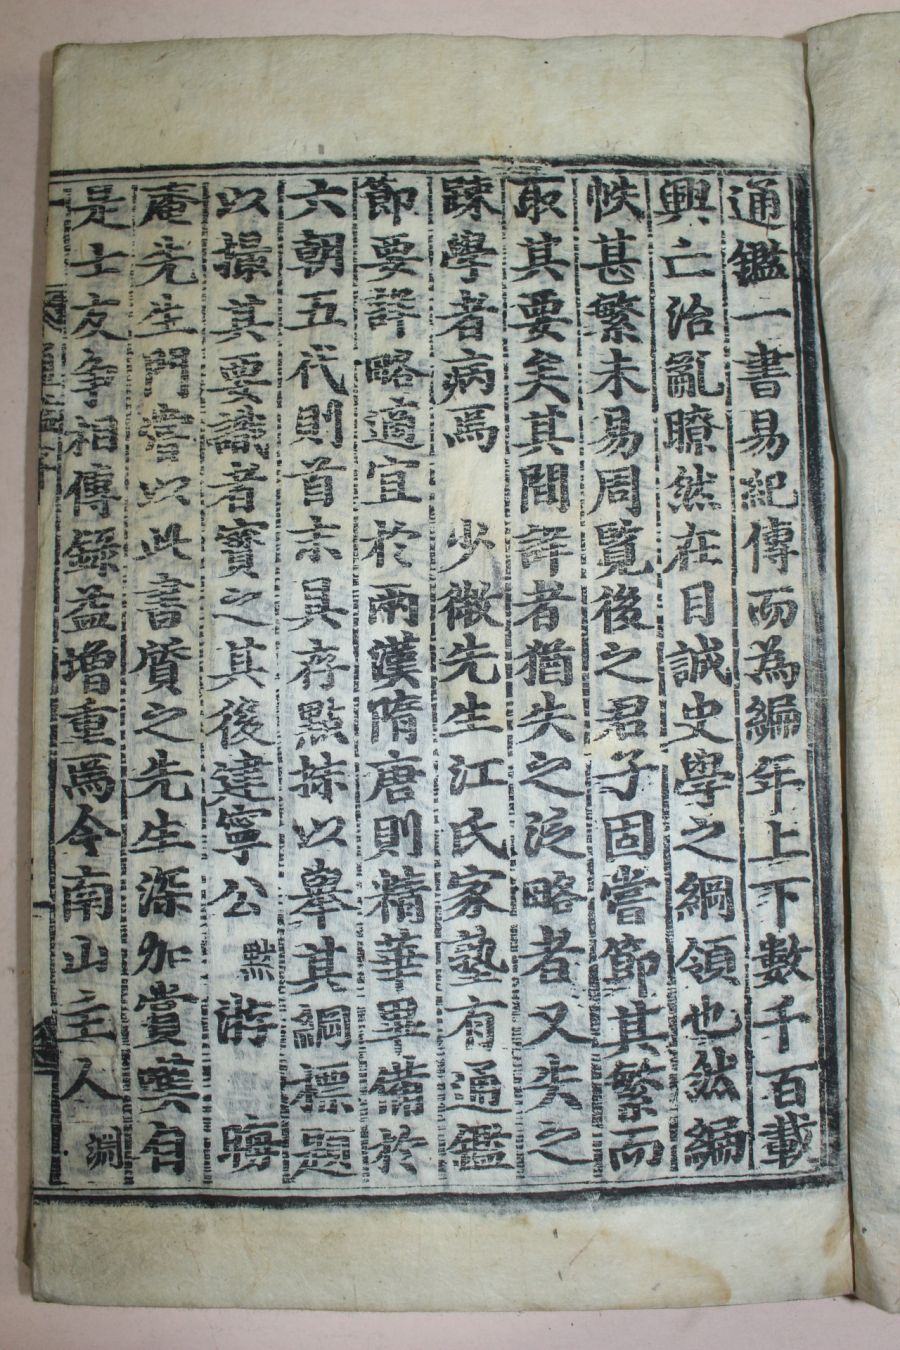 通鑑一書易紀傳而為編年上下數千百載
興亡治亂瞭然在目誠史學之綱領也然編
帙甚繁未易周覽後之君子固嘗節其繁而
取其要矣其間詳者猶失之泛略者又失之
踈學者病焉 少微先生江氏家塾有通鑑
節要詳略適宜於兩漢隋唐則精華畢備於
六朝五代則首末具存點抹以舉其綱標題
以撮其要識者寶之其後建寧公 默游 晦
庵先生門嘗以此書質之先生深加賞奬自
是士友爭相傳錄益增重焉今南山主人 淵